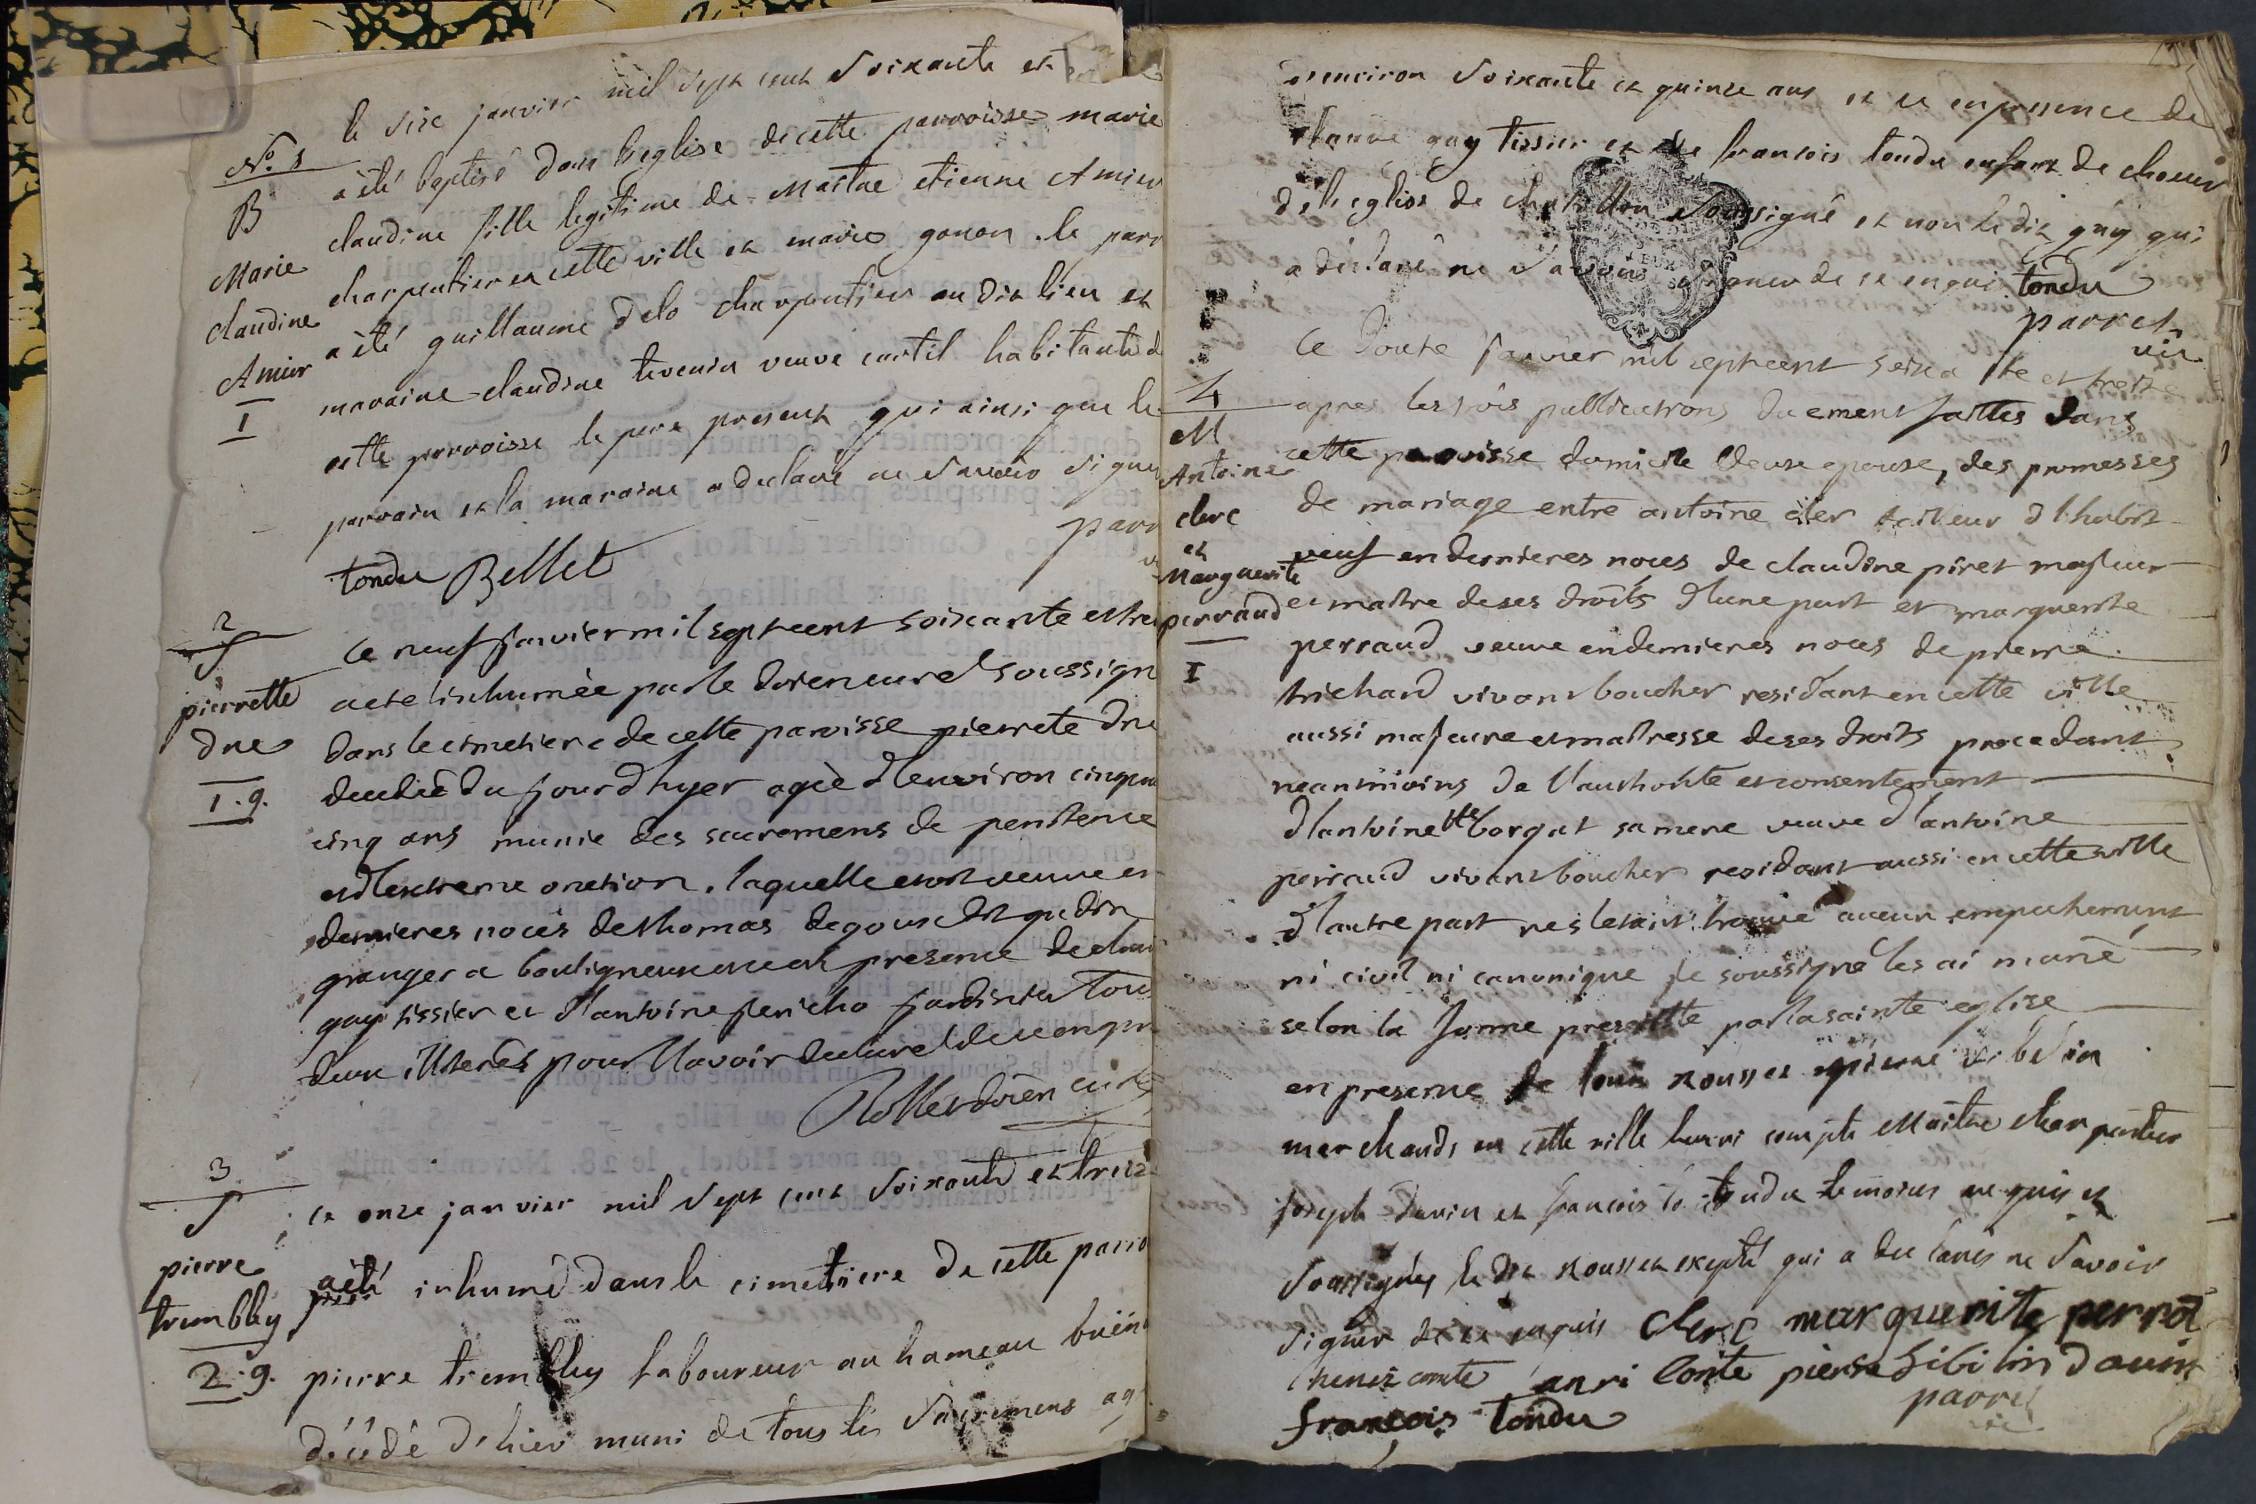 le six janvier mil sept cent soixante et
a été baptisé dans l'eglise de cette parroisse marie
claudine fille legitime de Maitre etienne Amieu
charpentier en cette ville et marie gonon. le parr
a été guillaume charpentier au dit lieu et
maraine claudine tevenin veuve curtil habitante d
cette parroisse le pere present qui ainsi que le
parrain et la maraine a declaré ne savoir signe
parr
tondu Bellet
No. 1
B
Marie
claudine
Amieur
I
Ce neuf janvier mil sept cent soixante et trei
a eté inhumée par le doien curé soussign
dans le cimetiere de cette paroisse pierrete dru
decedée du jour d'hyer agée d'environ cinqua
cinq ans munie des sacremens de penitence
et d'extreme onction. laquelle etoit veuve en
dernieres noces de thomas
granger a bouligneux en presence de claude
guy tissier et d'antoine jericho jardinier tous
deux illiterés pour l'avoir declaré de ce enqui
doien curé
2
S
pierrette
drue
1.g.
ce onze janvier mil sept cent soixante et treize
a été inhumé dans le cimetiere de cette parro
pierre trembley laboureur au hameau
décédé d'hier muni de tous les sacremens ag
3
S
pierre
trembley
2.g.
d'environ soixante et quinze ans et ce en presence de
claude guy tissier et de francois tondu enfant de choeur
de l'eglise de chatillon soussigné et non le dit guy qui
a déclaré ne savoir signer de ce enquis tondu
parret
vic
Ce douze janvier mil sept cent soixante et treize
apres les trois publications duement faittes dans
cette paroisse domicile des deux epoux, des promesses
de mariage entre antoine clerc tailleur d'habit
veuf en dernieres noces de claudine piret majeur
et maitre de ses droits d'une part et marguerite
perraud veuve en dernieres noces de pierre
trichard vivant boucher residant en cette ville
aussi majeure et maitresse de ses droits procedant
neantmoins de l'authorité et consentement
d'antoinette borgat sa mere veuve d'antoine
perraud vivant boucher residant aussi en cette ville
d'autre part ne s'etant trouvé aucun empechement
ni civil ni canonique je soussigné les ai marié
selon la forme prescritte par la sainte eglise
en presence de louis rousset pierre
marchands en cette ville henri compte Maitre charpentier
joseph davin et francois tondu temoins requis et
soussignés le dit rousset excepté qui a declaré ne savoir
signer de ce enquis Clerc marguerite perrot
henri comte anri Conte pierre davin
francois tondu parret
vic
4
M
Antoine
clerc
et
Marguerite
perraud
I